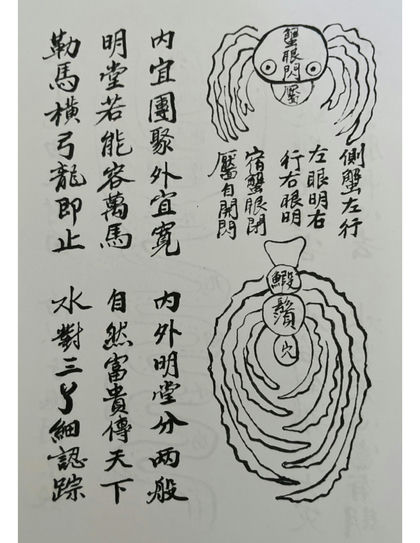 蟹眼閃
厴
側蟹左行
左眼明右
行右眼明
宿蟹眼閉
厴自開閃
蝦
鬚
穴
內宜團聚外宜寬
內外明堂分两般
明堂若能容萬馬
自然富貴傳天下
勒馬橫弓龍即止
水對三丫細認踪